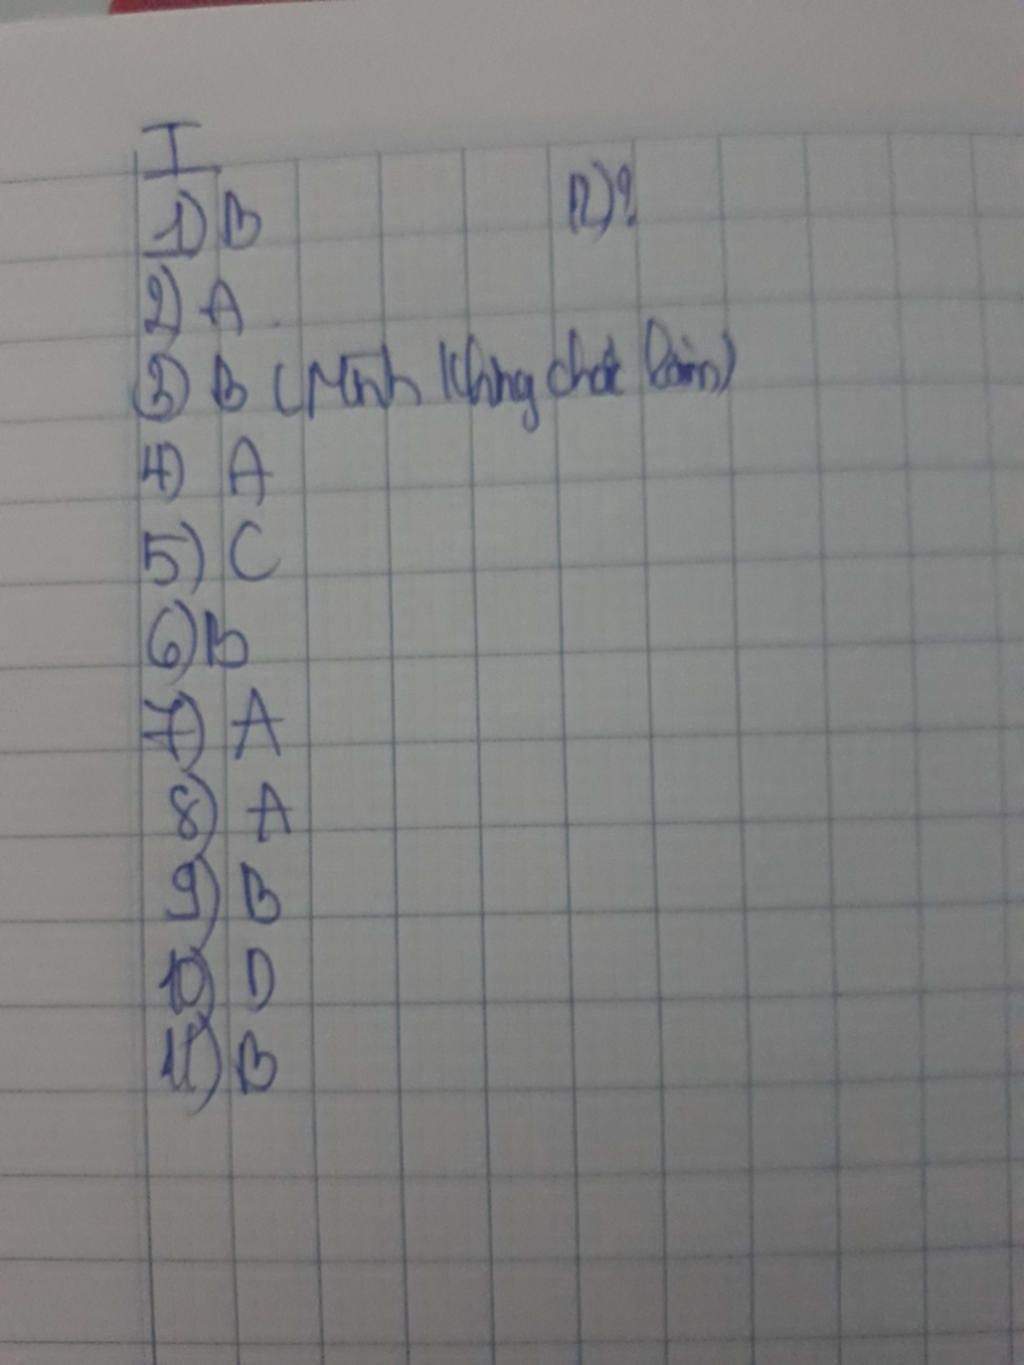 I
1) B
12)?
2) A
3) B (Mình không chắc lắm)
4) A
5) C
6) B
7) A
8) A
9) B
10) D
11) B